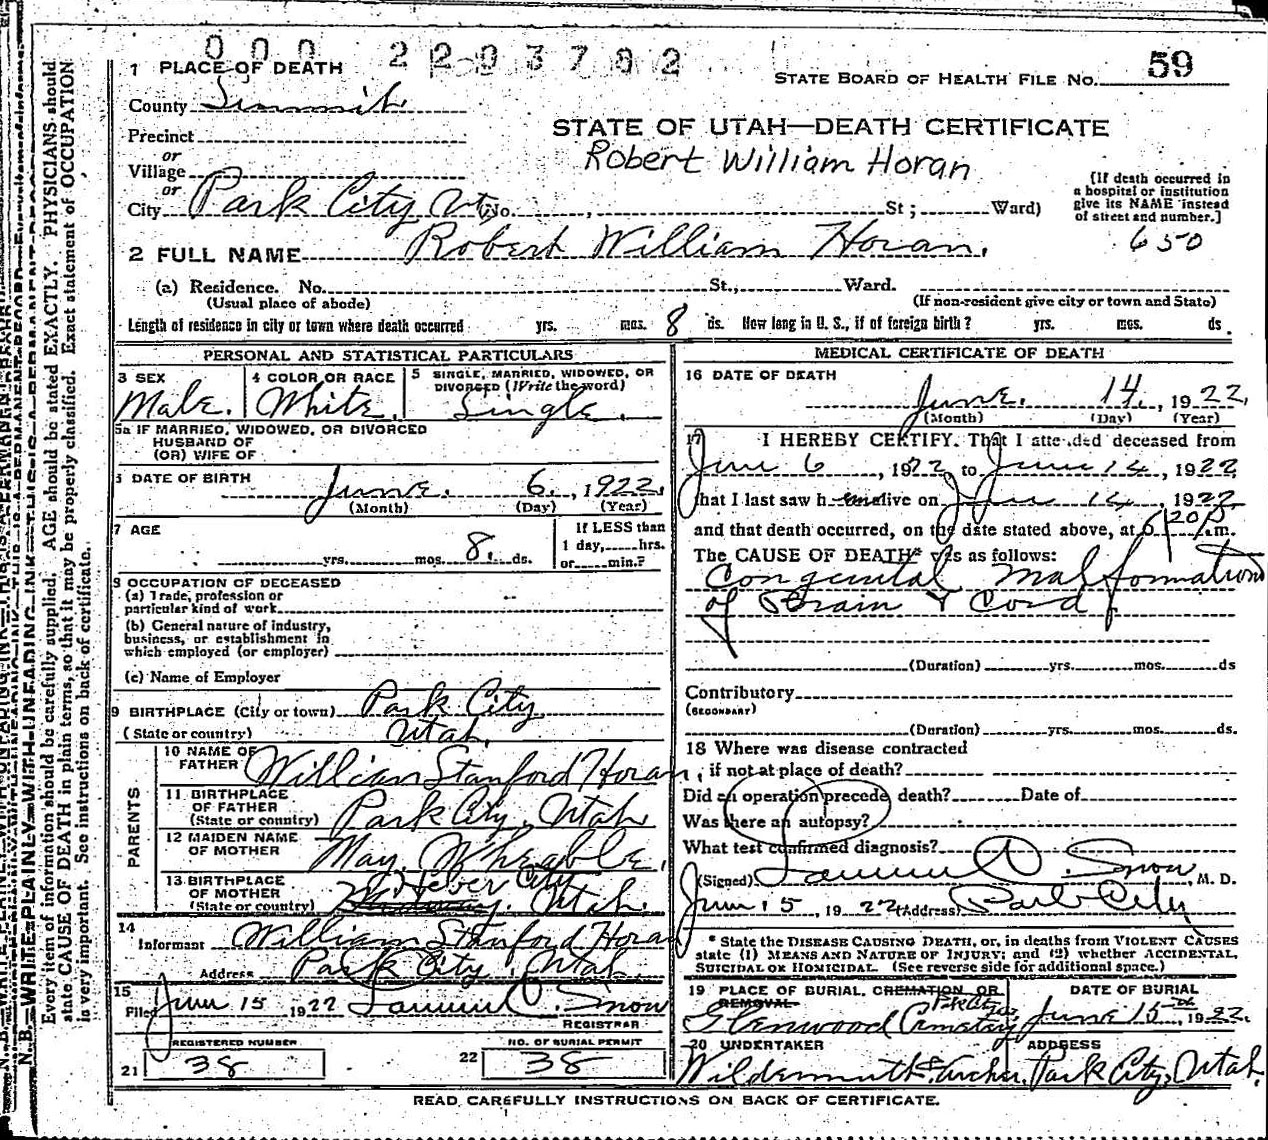 0 0 0 2 2 9 3 7 8 2
1 PLACE OF DEATH
STATE BOARD OF HEALTH FILE NO. 59
County Summit
STATE OF UTAH—DEATH CERTIFICATE
Precinct
Robert William Horan
or
Village
or
City Park City, Ut. No. , St; Ward)
[If death occurred in
a hospital or institution
give its NAME instead
of street and number.]
650
2 FULL NAME Robert William Horan.
(a) Residence. No. St., Ward.
(Usual place of abode) (If non-resident give city or town and State)
Length of residence in city or town where death occurred yrs. mos. 8 ds. How long in U. S., if of foreign birth? yrs. mos. ds.
PERSONAL AND STATISTICAL PARTICULARS
3 SEX Male.
4 COLOR OR RACE White.
5 SINGLE, MARRIED, WIDOWED, OR
DIVORCED (Write the word)
Single.
5a IF MARRIED, WIDOWED, OR DIVORCED
HUSBAND OF
(OR) WIFE OF
6 DATE OF BIRTH June. 6., 1922.
(Month) (Day) (Year)
7 AGE
yrs. mos. 8. ds.
If LESS than
1 day, hrs.
or min.?
8 OCCUPATION OF DECEASED
(a) Trade, profession or
particular kind of work
(b) General nature of industry,
business, or establishment in
which employed (or employer)
(c) Name of Employer
9 BIRTHPLACE (City or town) Park City
(State or country) Utah.
PARENTS
10 NAME OF
FATHER William Stanford Horan
11 BIRTHPLACE
OF FATHER
(State or country) Park City, Utah
12 MAIDEN NAME
OF MOTHER May
13 BIRTHPLACE
OF MOTHER
(State or country) Heber City, Utah.
14
Informant William Stanford Horan
Address Park City, Utah.
15
Filed June 15 1922 Samuel O. Snow
REGISTRAR
REGISTERED NUMBER
21 38
NO. OF BURIAL PERMIT
22 38
MEDICAL CERTIFICATE OF DEATH
16 DATE OF DEATH
June. 14., 1922,
(Month) (Day) (Year)
17 I HEREBY CERTIFY. That I attended deceased from
June 6, 1922 to June 14, 1922
that I last saw h im alive on June 14, 1922
and that death occurred, on the date stated above, at 6/20/P.m.
The CAUSE OF DEATH* was as follows:
Congenital Malformation
of Brain & Cord
(Duration) yrs. mos. ds
Contributory
(SECONDARY)
(Duration) yrs. mos. ds.
18 Where was disease contracted
, if not at place of death?
Did an operation precede death? Date of
Was there an autopsy?
What test confirmed diagnosis?
(Signed) Samuel O. Snow, M. D.
June 15, 1922 (Address) Park City
* State the DISEASE CAUSING DEATH, or, in deaths from VIOLENT CAUSES
state (1) MEANS AND NATURE OF INJURY; and (2) whether ACCIDENTAL,
SUICIDAL OR HOMICIDAL. (See reverse side for additional space.)
19 PLACE OF BURIAL, CREMATION, OR
REMOVAL
Glenwood Cemetary
DATE OF BURIAL
June 15th, 1922.
20 UNDERTAKER
Wildermuth & Archer.
ADDRESS
Park City, Utah.
READ CAREFULLY INSTRUCTIONS ON BACK OF CERTIFICATE.
N. B.—WRITE PLAINLY WITH UNFADING INK—THIS IS A PERMANENT RECORD
Every item of information should be carefully supplied. AGE should be stated EXACTLY. PHYSICIANS should
state CAUSE OF DEATH in plain terms, so that it may be properly classified. Exact statement of OCCUPATION
is very important. See instructions on back of certificate.